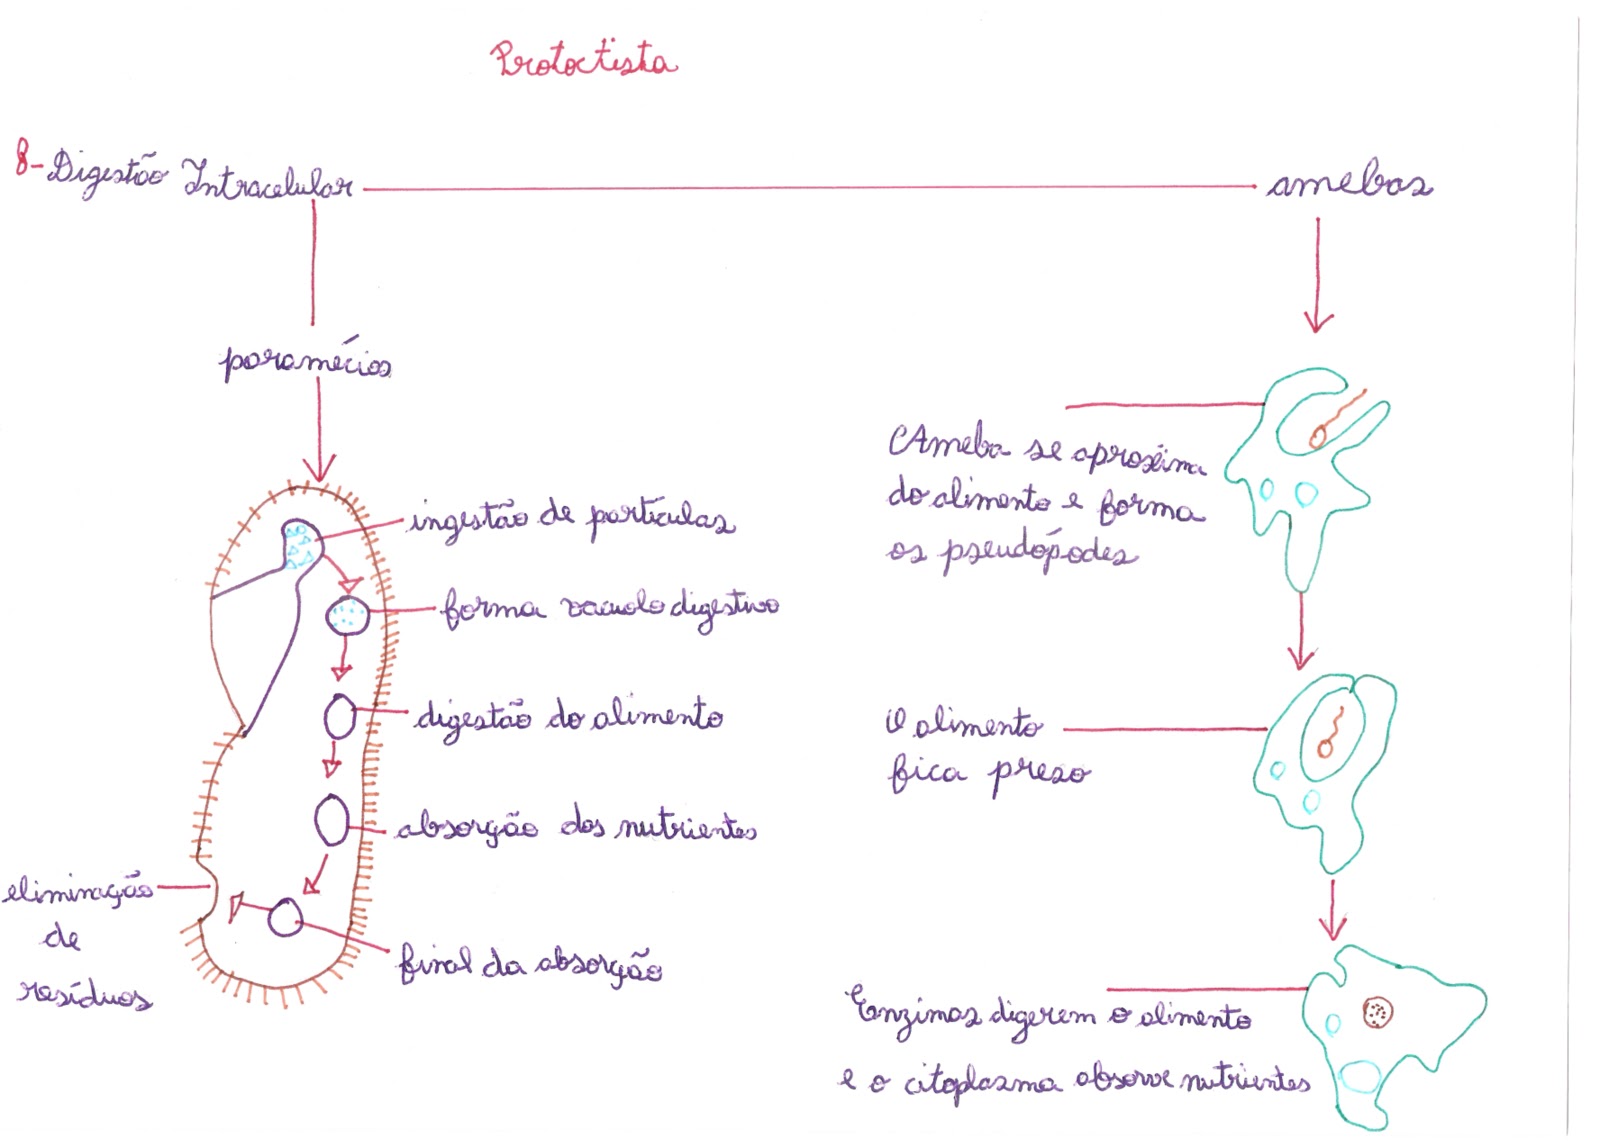 Protoctista
8- Digestão Intracelular
amebas
paramécios
ingestão de partículas
forma vacuolo digestivo
digestão do alimento
absorção dos nutrientes
eliminação
de
resíduos
final da absorção
Ameba se aproxima
do alimento e forma
os pseudópodes
O alimento
fica preso
Enzimas digerem o alimento
e o citoplasma absorve nutrientes